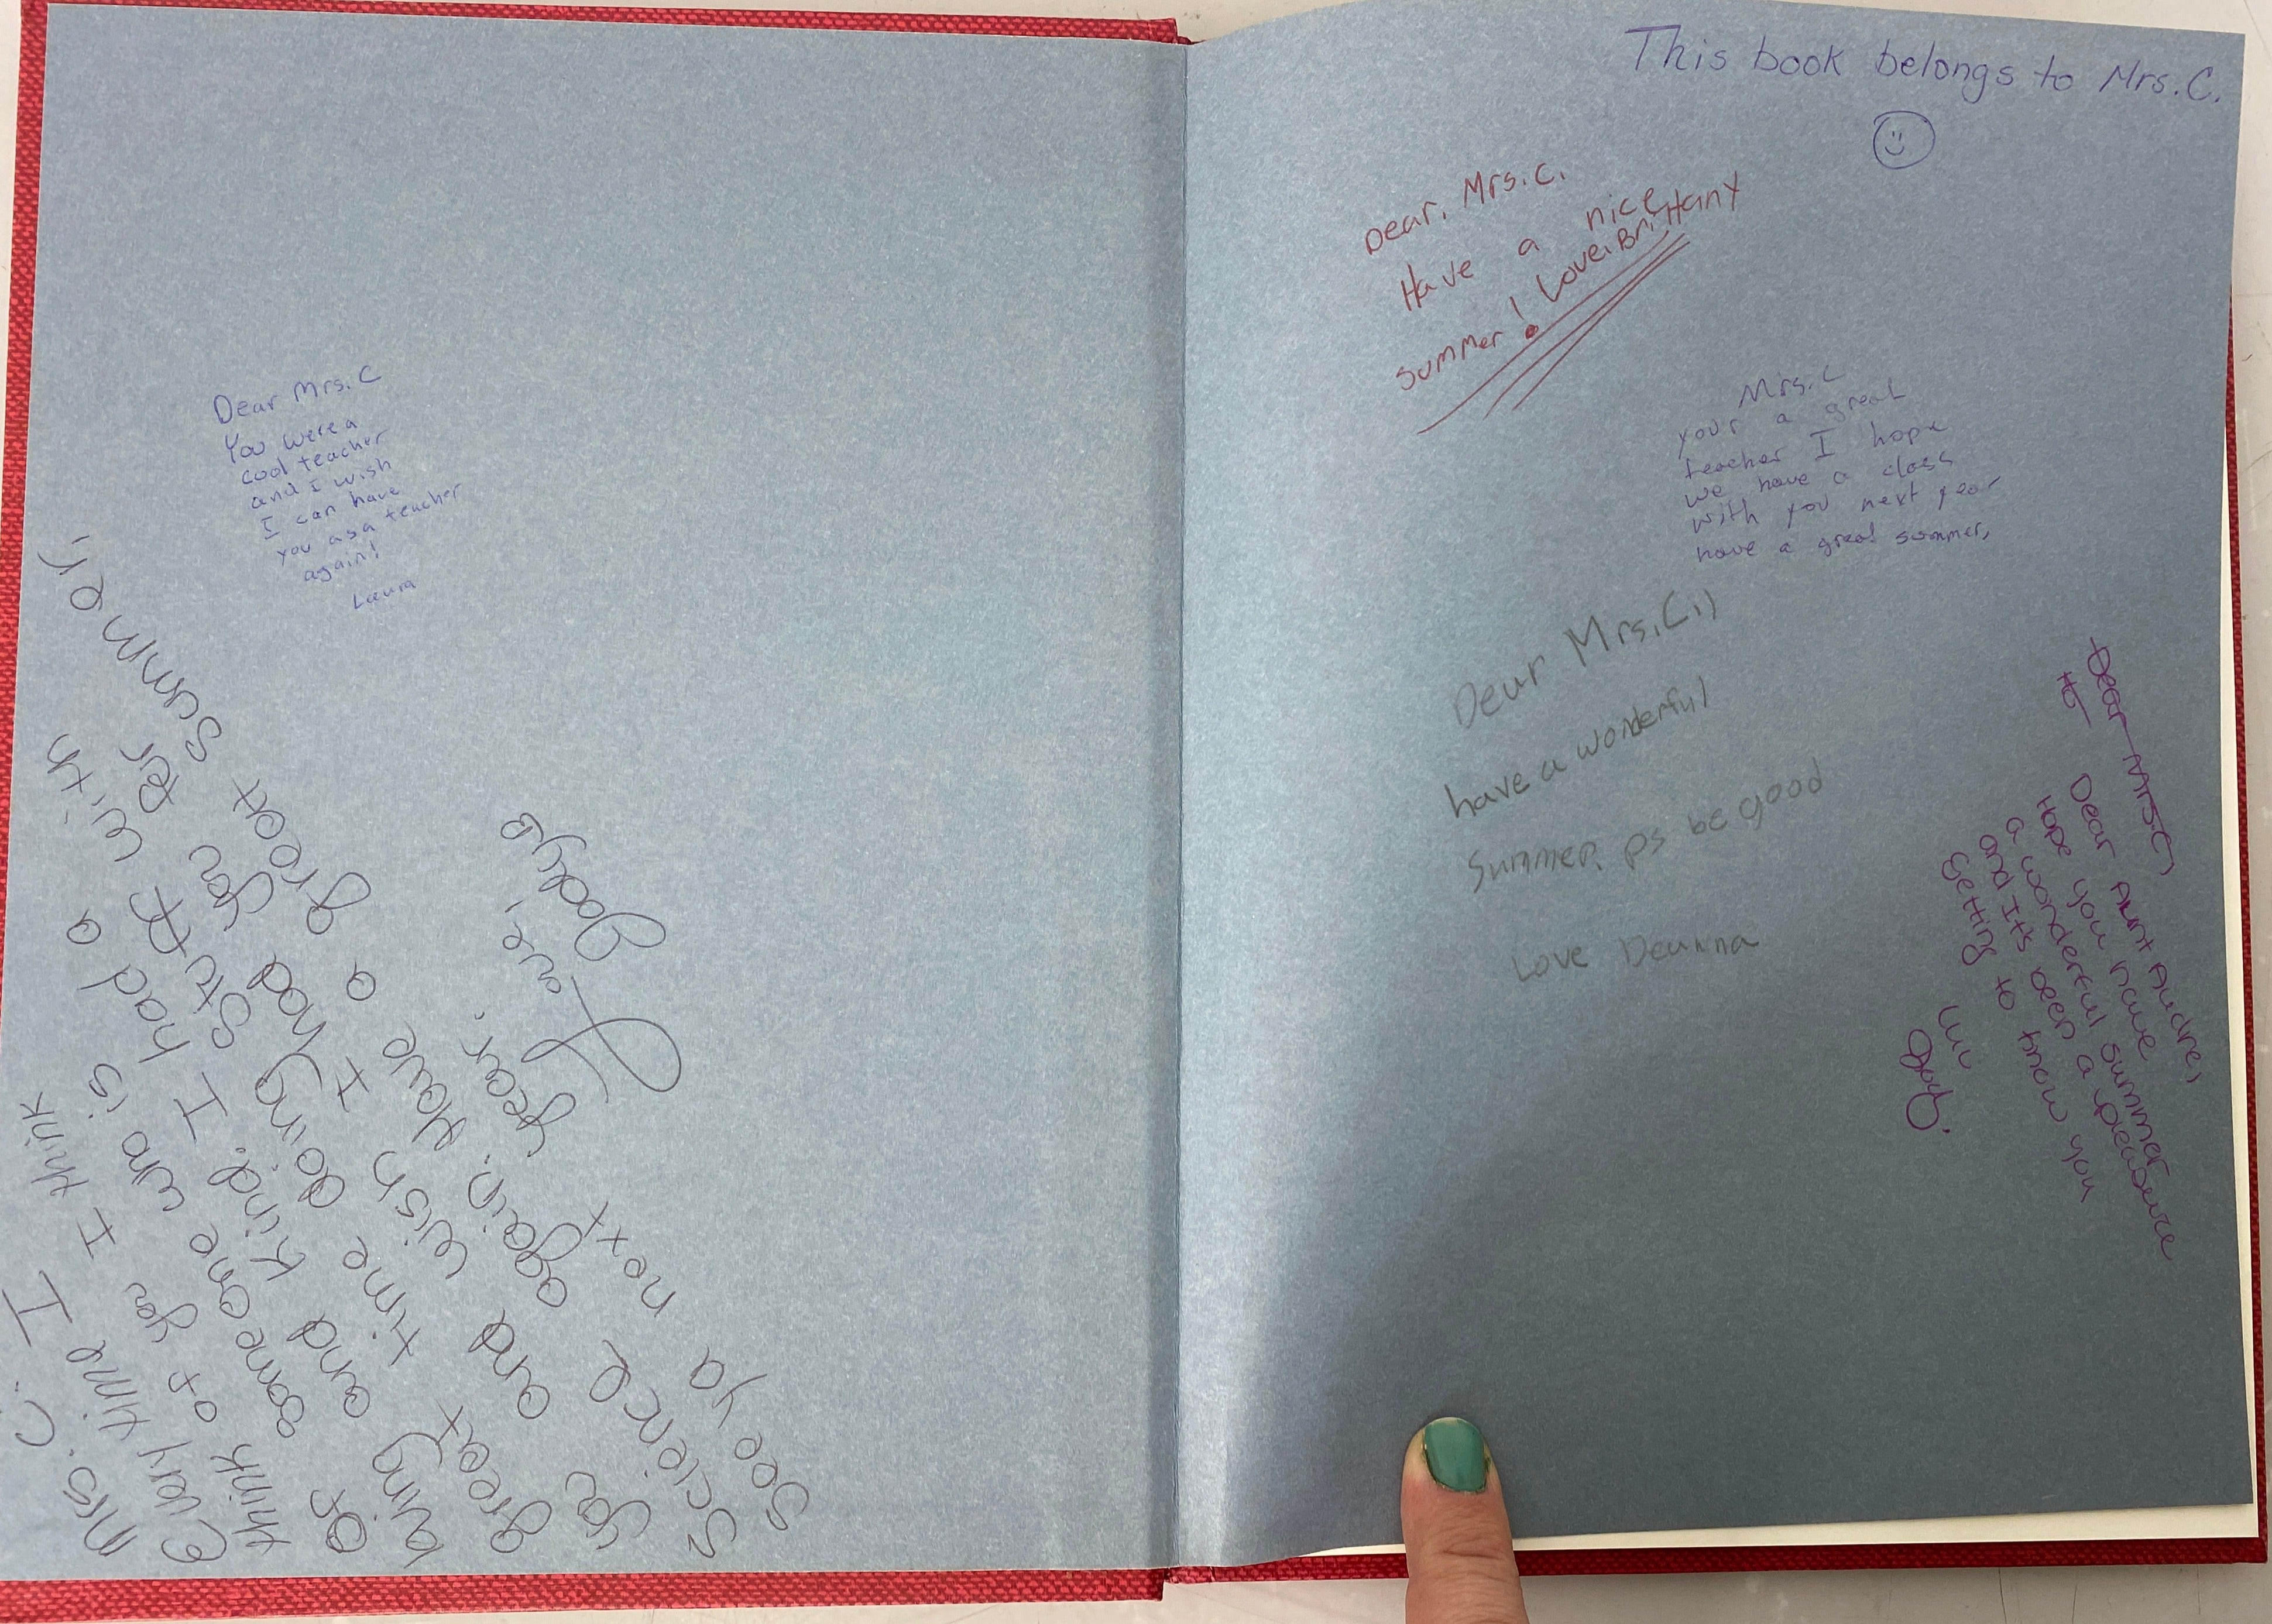 Dear Mrs. C
You were a
cool teacher
and I wish
I can have
you as a teacher
again!
Laura
Mrs. C.
Every time I
think of you I think
of someone who is
and kind. I had a
time doing stuff with
wish I had you for
and again. Have a great summer,
Science
See ya next year.
Love,
Jody
This book belongs to Mrs. C.
Dear, Mrs. C.
Have a nice
summer! Love, Brittany
Mrs. C
your a great
teacher I hope
we have a class
with you next year
have a great summer,
Dear Mrs. C,,
have a wonderful
Summer. ps be good
Love Deanna
Dear Mrs. C,
Dear Aunt Audre,
Hope you have
a wonderful summer
and It's been a pleasure
getting to know you